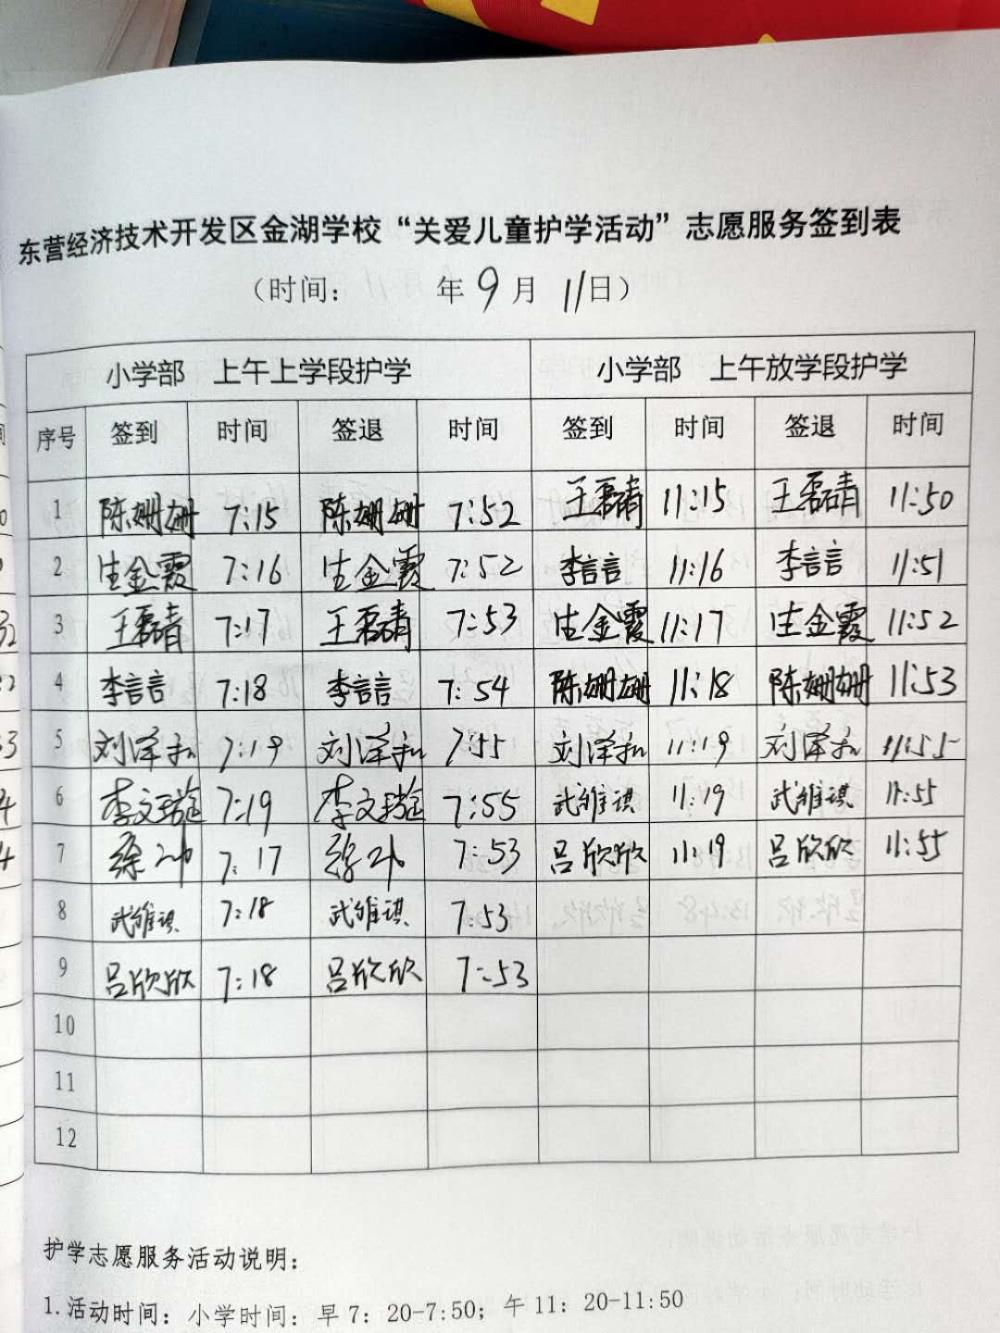 东营经济技术开发区金湖学校“关爱儿童护学活动”志愿服务签到表
（时间： 年 9 月 11日）
小学部 上午上学段护学 小学部 上午放学段护学
序号 签到 时间 签退 时间 签到 时间 签退 时间
1 陈姗姗 7:15 陈姗姗 7:52 王磊青 11:15 王磊青 11:50
2 生金霞 7:16 生金霞 7:52 李言言 11:16 李言言 11:51
3 王磊青 7:17 王磊青 7:53 生金霞 11:17 生金霞 11:52
4 李言言 7:18 李言言 7:54 陈姗姗 11:18 陈姗姗 11:53
5 刘泽和 7:19 刘泽和 7:55 刘泽和 11:19 刘泽和 11:55
6 李文璇 7:19 李文璇 7:55 武维祺 11:19 武维祺 11:55
7 7:17 7:53 吕欣欣 11:19 吕欣欣 11:55
8 武维祺 7:18 武维祺 7:53
9 吕欣欣 7:18 吕欣欣 7:53
10
11
12
护学志愿服务活动说明：
1.活动时间：小学时间：早 7：20-7:50；午 11：20-11:50